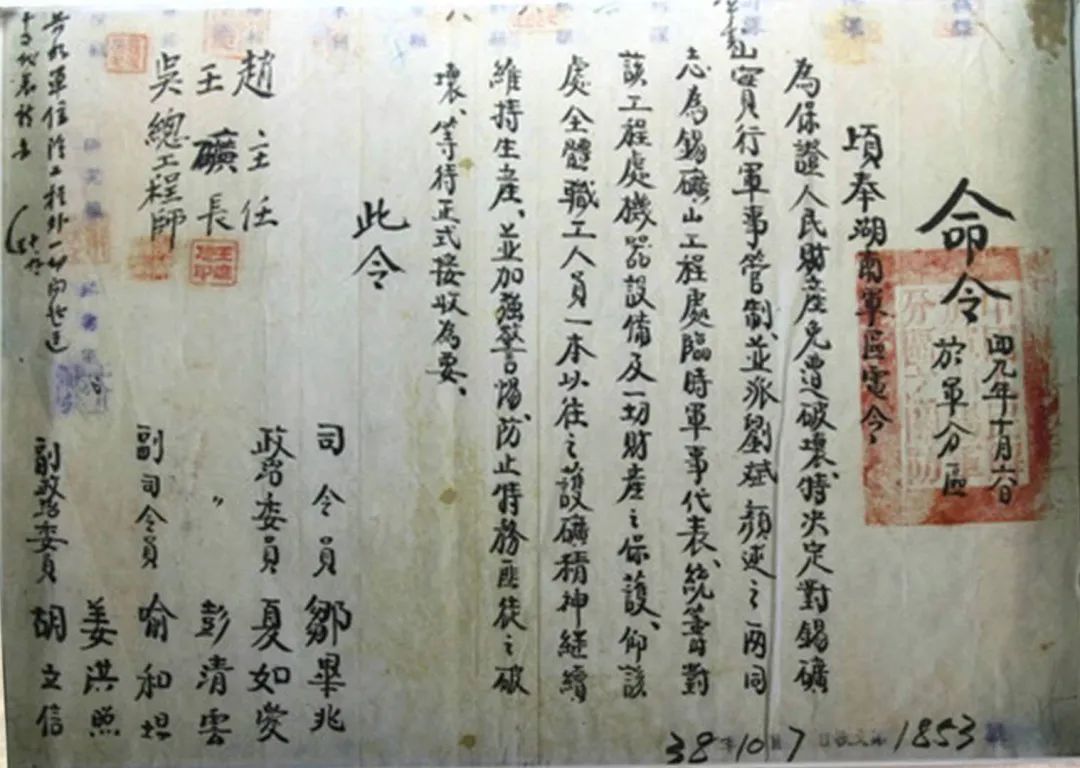 命令 四九年十月六日
於軍分區
頃奉湖南軍區電令
為保證人民財產免遭破壞、特決定對錫礦
山實行軍事管制、並派劉斌、顏速之兩同
志為錫礦山工程處臨時軍事代表、統籌對
該工程處機器設備及一切財產之保護、仰該
處全體職工人員一本以往之護礦精神繼續
維持生產、並加強警惕、防止特務匪徒之破
壞、等待正式接收為要、
此令
趙主任
王礦長
吳總工程師
司令員 鄒畢兆
政治委員 夏如愛
〃 彭清雲
副司令員 喻和坦
姜洪照
副政治委員 胡立信
38年10月7日 1853號